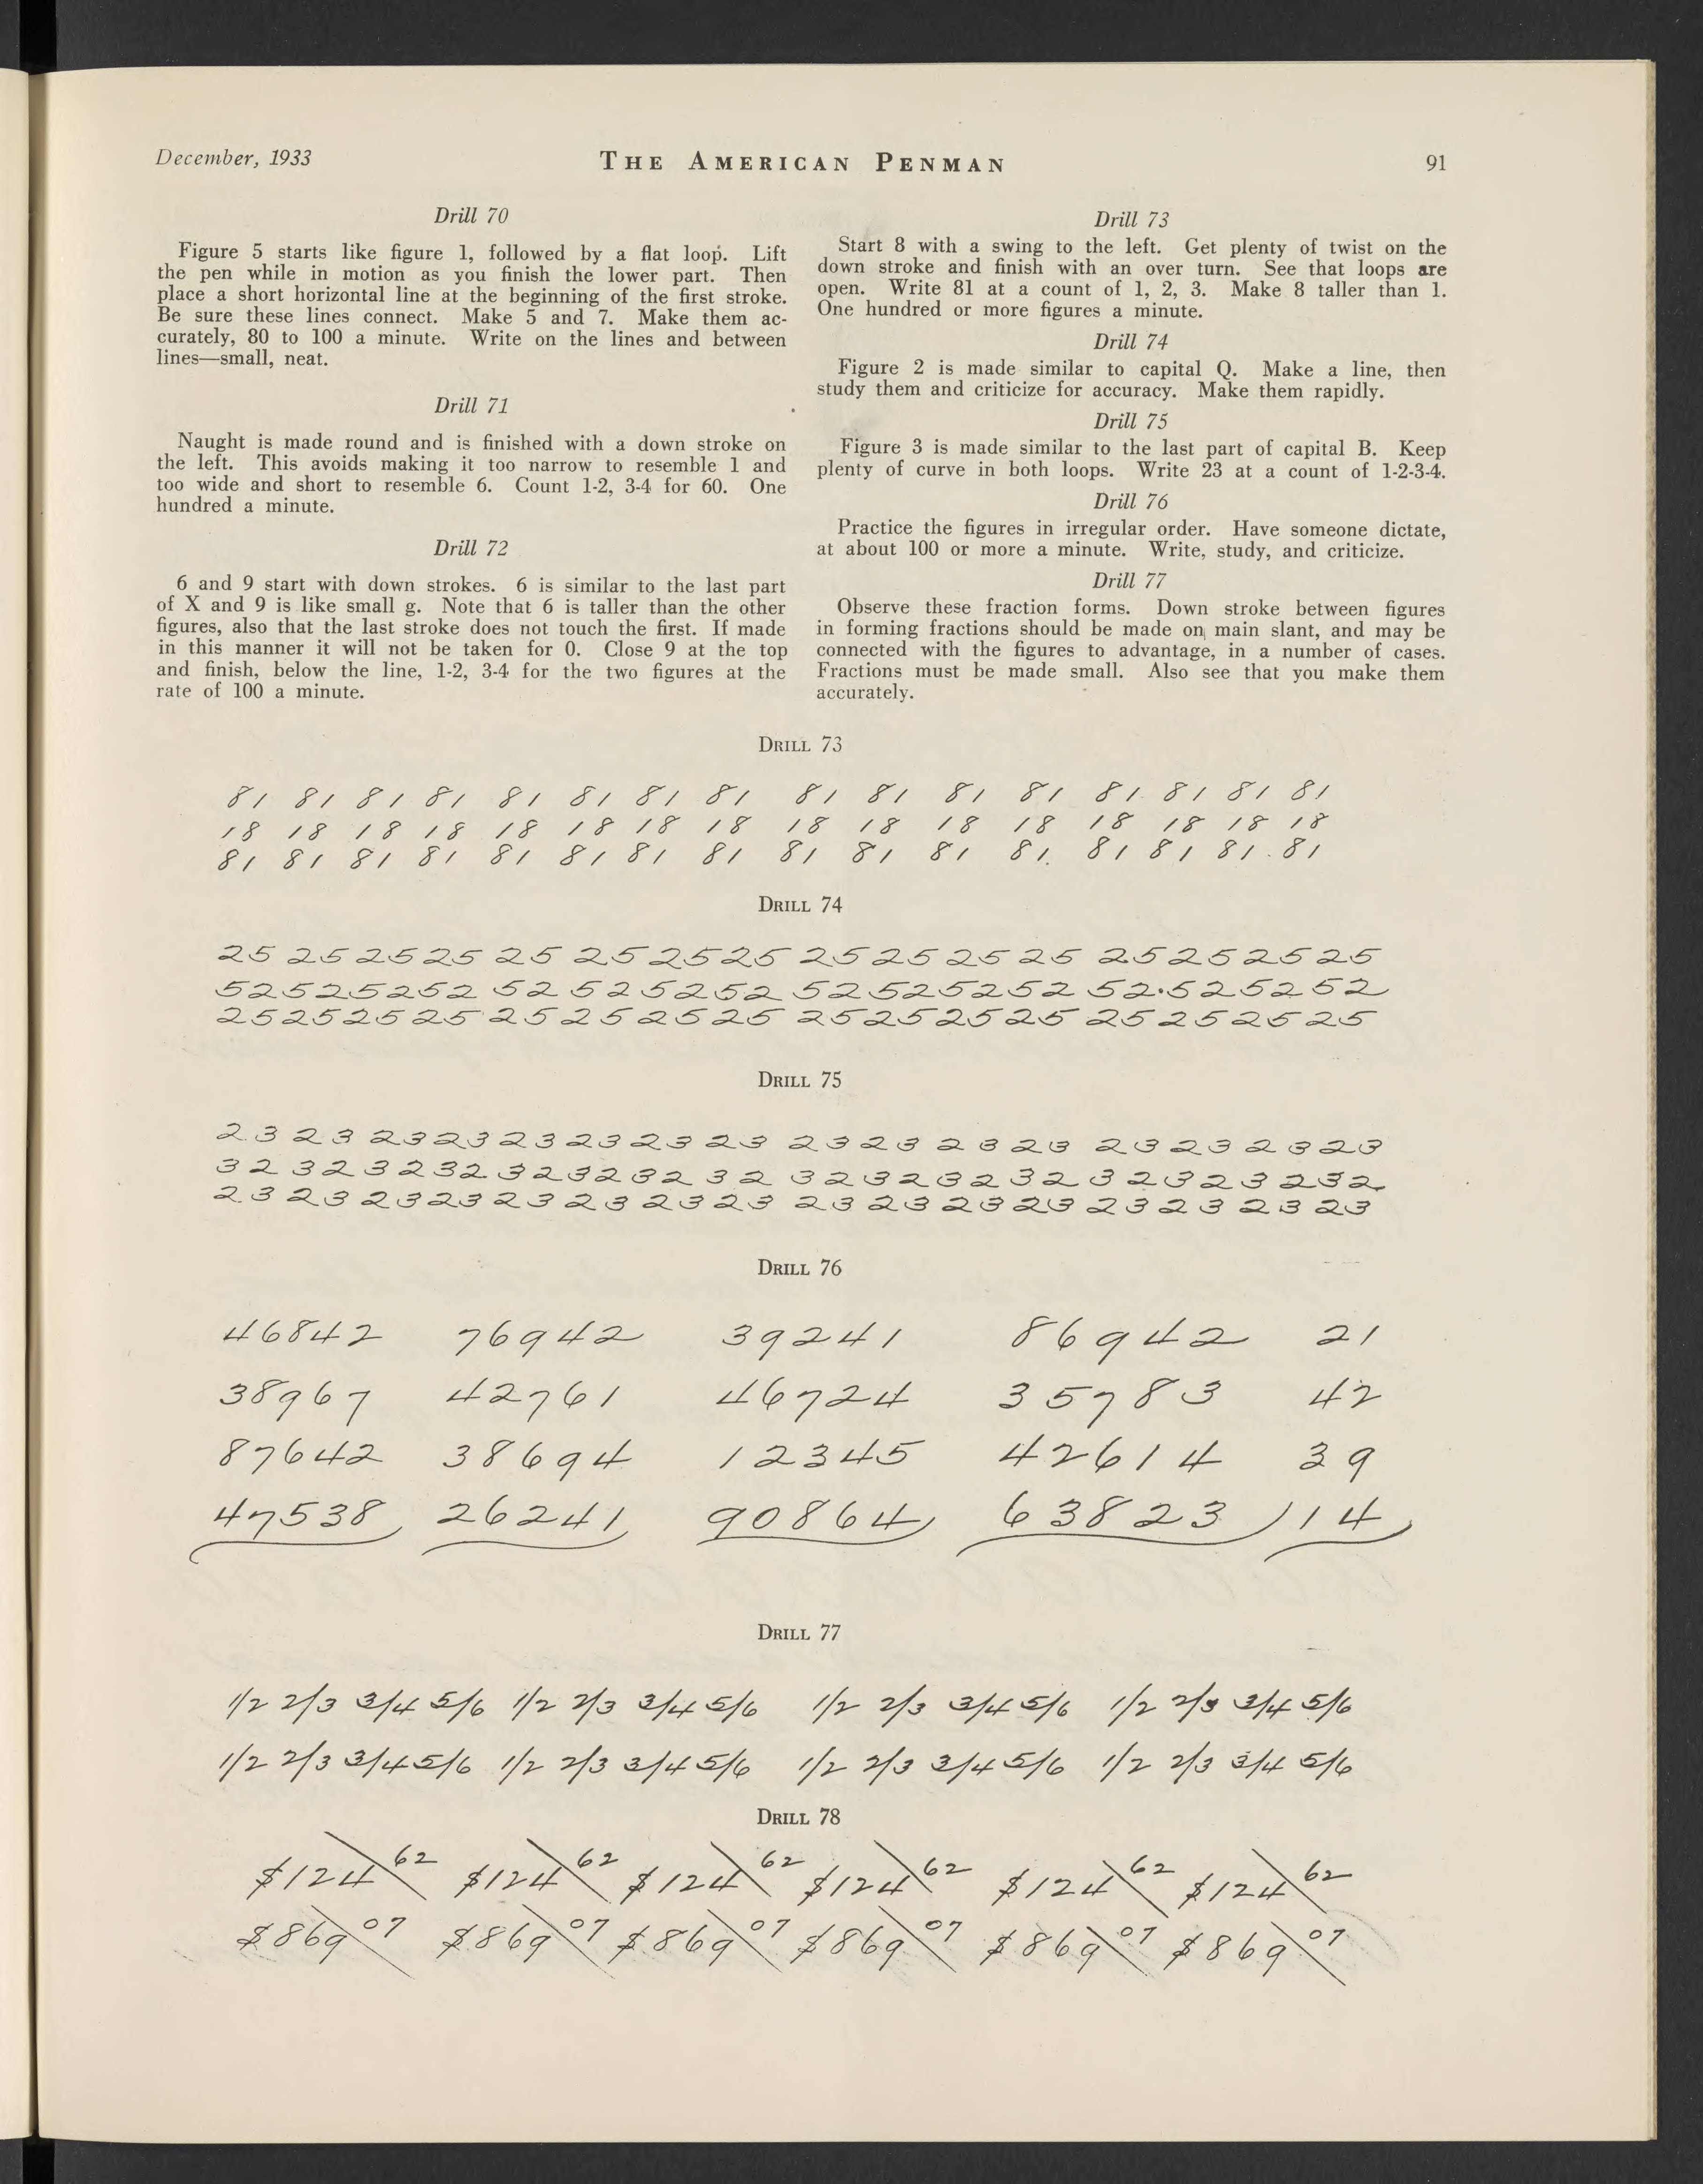 December, 1933
THE AMERICAN PENMAN
91
Drill 70
Figure 5 starts like figure 1, followed by a flat loop. Lift
the pen while in motion as you finish the lower part. Then
place a short horizontal line at the beginning of the first stroke.
Be sure these lines connect. Make 5 and 7. Make them ac-
curately, 80 to 100 a minute. Write on the lines and between
lines—small, neat.
Drill 71
Naught is made round and is finished with a down stroke on
the left. This avoids making it too narrow to resemble 1 and
too wide and short to resemble 6. Count 1-2, 3-4 for 60. One
hundred a minute.
Drill 72
6 and 9 start with down strokes. 6 is similar to the last part
of X and 9 is like small g. Note that 6 is taller than the other
figures, also that the last stroke does not touch the first. If made
in this manner it will not be taken for 0. Close 9 at the top
and finish, below the line, 1-2, 3-4 for the two figures at the
rate of 100 a minute.
Drill 73
Start 8 with a swing to the left. Get plenty of twist on the
down stroke and finish with an over turn. See that loops are
open. Write 81 at a count of 1, 2, 3. Make 8 taller than 1.
One hundred or more figures a minute.
Drill 74
Figure 2 is made similar to capital Q. Make a line, then
study them and criticize for accuracy. Make them rapidly.
Drill 75
Figure 3 is made similar to the last part of capital B. Keep
plenty of curve in both loops. Write 23 at a count of 1-2-3-4.
Drill 76
Practice the figures in irregular order. Have someone dictate,
at about 100 or more a minute. Write, study, and criticize.
Drill 77
Observe these fraction forms. Down stroke between figures
in forming fractions should be made on main slant, and may be
connected with the figures to advantage, in a number of cases.
Fractions must be made small. Also see that you make them
accurately.
DRILL 73
81 81 81 81 81 81 81 81 81 81 81 81 81 81 81 81
18 18 18 18 18 18 18 18 18 18 18 18 18 18 18 18
81 81 81 81 81 81 81 81 81 81 81 81 81 81 81 81
DRILL 74
25 25 25 25 25 25 25 25 25 25 25 25 25 25 25 25
52 52 52 52 52 52 52 52 52 52 52 52 52 52 52 52
25 25 25 25 25 25 25 25 25 25 25 25 25 25 25 25
DRILL 75
23 23 23 23 23 23 23 23 23 23 23 23 23 23 23 23
32 32 32 32 32 32 32 32 32 32 32 32 32 32 32 32
23 23 23 23 23 23 23 23 23 23 23 23 23 23 23 23
DRILL 76
46842 76942 39241 86942 21
38967 42761 46724 35783 42
87642 38694 12345 42614 39
47538 26241 90864 63823 14
DRILL 77
1/2 2/3 3/4 5/6 1/2 2/3 3/4 5/6 1/2 2/3 3/4 5/6 1/2 2/3 3/4 5/6
1/2 2/3 3/4 5/6 1/2 2/3 3/4 5/6 1/2 2/3 3/4 5/6 1/2 2/3 3/4 5/6
DRILL 78
$124 62 $124 62 $124 62 $124 62 $124 62 $124 62
$869 07 $869 07 $869 07 $869 07 $869 07 $869 07